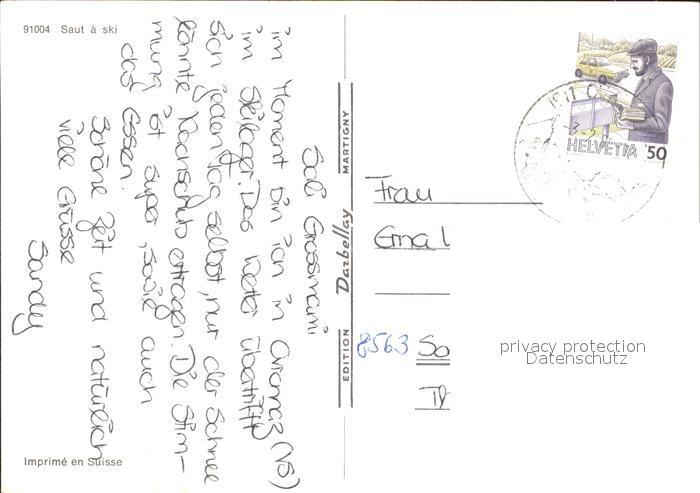 91004 Saut à ski
Sali Grossmami
im Moment bin ich in (VS)
im Skilager. Das Wetter übertrifft
sich jeden Tag selbst, nur der Schnee
könnte Nachschub ertragen. Die Stim-
mung ist super, sowie auch
das Essen.
Schöne Zeit und natürlich
viele Grüsse
Sandy
Imprimé en Suisse
EDITION Darbellay MARTIGNY
1911
HELVETIA 50
Frau
Erna
8563 So
TV
privacy protection
Datenschutz